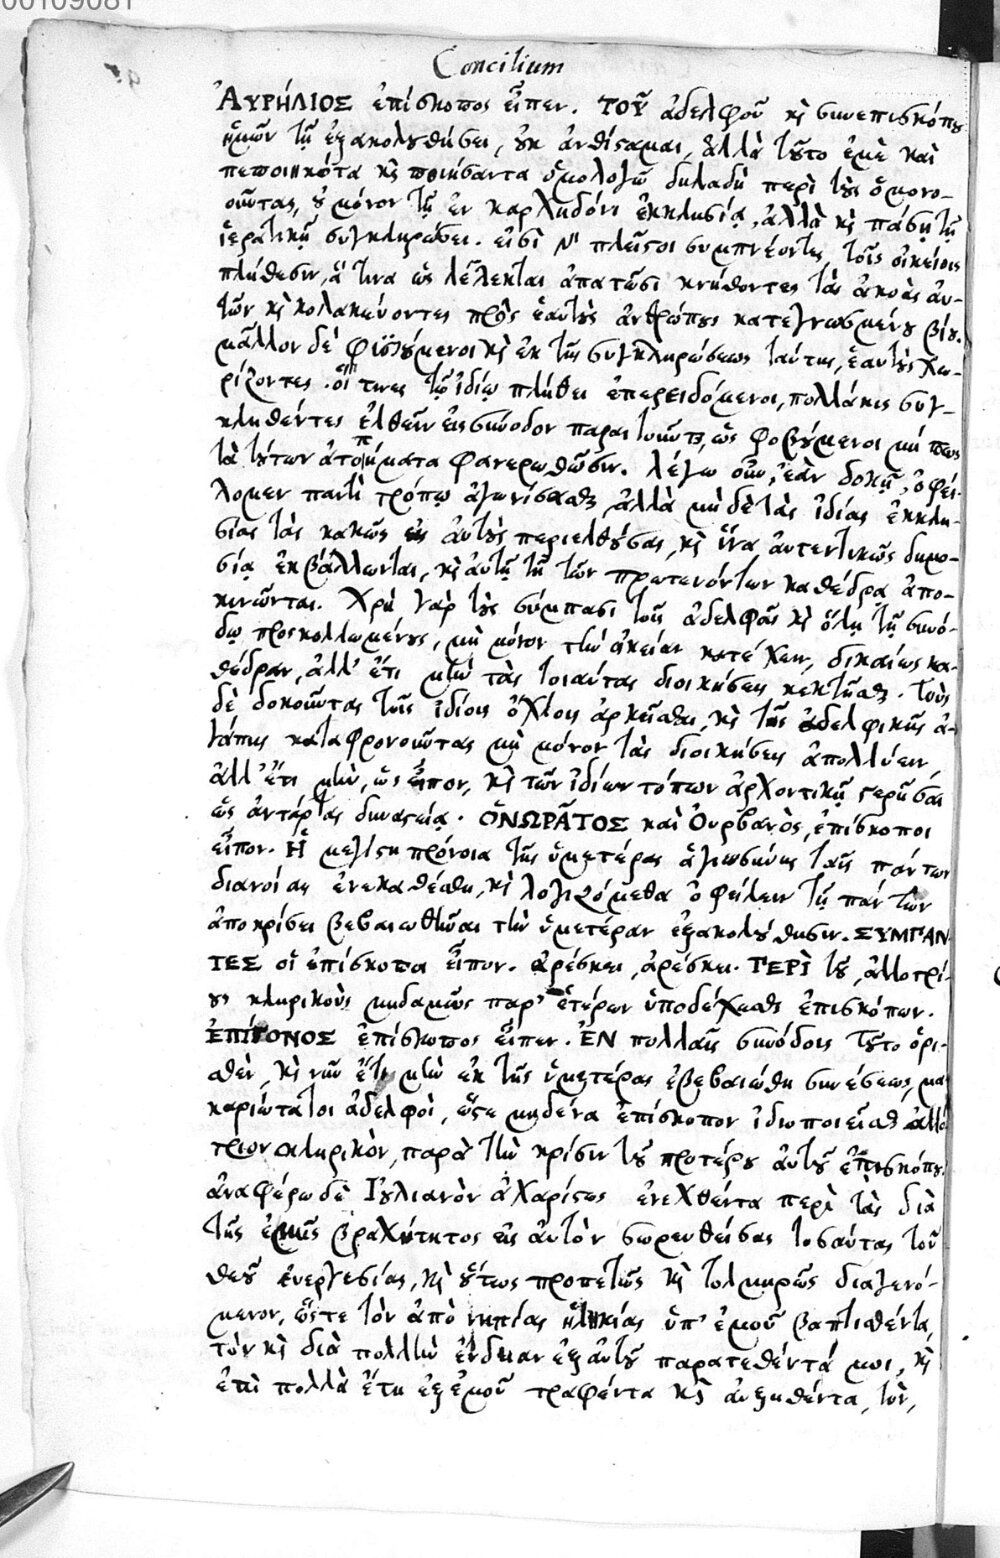 00109081
Concilium
ΑΥΡΉΛΙΟΣ ἐπίσκοπος εἶπεν. ΤΟΥ͂ ἀδελφοῦ κὶ συνεπισκόπου
ἡμῶν τῇ ἐξακολουθήσει, οὐκ ἀνθίσαμαι, ἀλλὰ τοῦτο ἐμὲ καὶ
πεποιηκότα κὶ ποιήσαντα ὁμολογῶ δηλαδὴ περὶ τοὺς ὁμονο-
οῦντας, οὐ μόνον τῇ ἐν καρληδόνι ἐκκλησίᾳ, ἀλλὰ κὶ πάσῃ τῇ
ἱερατικῇ συγκληρώσει. εἰσὶ γὰρ πλεῖστοι συμπνέοντες τοῖς οἰκείοις
πλήθεσιν, ἅ τινα ὡς λέλεκται ἀπατῶσι κνήθοντες τὰς ἀκοὰς αὐ-
τῶν κὶ κολακεύοντες πρὸς ἑαυτοὺς ἀνθρώπους κατεγνωσμένου βίου.
μᾶλλον δὲ φυσούμενοι κὶ ἐκ τῆς συγκληρώσεως ταύτης, ἑαυτοὺς χω-
ρίζοντες. οἵ τινες τῷ ἰδίῳ πλήθει ἐπερειδόμενοι, πολλάκις συγ-
κληθέντες ἐλθεῖν εἰς σύνοδον παραιτοῦνται, ὡς φοβούμενοι μή πως
τὰ τούτων ἀτοπήματα φανερωθῶσιν. λέγω οὖν, ἐὰν δοκῇ, ὀφεί-
λομεν παντὶ τρόπῳ ἀγωνίσασθαι, ἀλλὰ μὴ δὲ τὰς ἰδίας ἐκκλη-
σίας τὰς κακῶς εἰς αὐτοὺς περιελθούσας, κὶ ἵνα αὐτεντικῶς δημο-
σίᾳ ἐκβάλλωνται, κὶ αὐτῇ τῇ τῶν πρωτευόντων καθέδρᾳ ἀπο-
κινῶνται. Χρὴ γὰρ τοὺς σύμπασι τοῖς ἀδελφοῖς κὶ ὅλῃ τῇ συνό-
δῳ προσκολλωμένους, μὴ μόνον τὴν οἰκείαν κατέχειν, δικαίως κα-
θέδραν, ἀλλ' ἔτι μὴν τὰς τοιαύτας διοικήσεις κεκτῆσθαι. τοὺς
δὲ δοκοῦντας τοῖς ἰδίοις ὄχλοις ἀρκεῖσθαι, κὶ τῆς ἀδελφικῆς ἀ-
γάπης καταφρονοῦντας μὴ μόνον τὰς διοικήσεις ἀπολλύειν,
ἀλλ' ἔτι μὴν, ὡς εἶπον, κὶ τῶν ἰδίων τόπων ἀρχοντικῇ στερῆσαι
ὡς ἀντάρτας δυναστείᾳ. ὉΝΩΡΑ͂ΤΟΣ καὶ Οὐρβανὸς, ἐπίσκοποι
εἶπον. Ἡ μεγίστη πρόνοια τῆς ὑμετέρας ἁγιωσύνης ταῖς πάντων
διανοίαις ἐνεκαθέσθη, κὶ λογιζόμεθα ὀφείλειν τῇ πάντων
ἀποκρίσει βεβαιωθῆναι τὴν ὑμετέραν ἐξακολούθησιν. ΣΥΜΠΑΝ-
ΤΕΣ οἱ ἐπίσκοποι εἶπον. ἀρέσκει, ἀρέσκει. ΠΕΡῚ τοῦ, ἀλλοτρί-
ους κληρικοὺς μηδαμῶς παρ' ἑτέρων ὑποδέχεσθαι ἐπισκόπων.
ἘΠΊΓΟΝΟΣ ἐπίσκοπος εἶπεν. ἘΝ πολλαῖς συνόδοις τοῦτο ὁρι-
σθὲν, κὶ νῦν ἔτι μὴν ἐκ τῆς ὑμετέρας ἐβεβαιώθη συνέσεως, μα
καριώτατοι ἀδελφοὶ, ὥστε μηδένα ἐπίσκοπον ἰδιωποιεῖσθαι ἀλλό
τριον κληρικὸν, παρὰ τὴν κρίσιν τοῦ προτέρου αὐτοῦ ἐπισκόπου.
ἀναφέρω δὲ Ἰουλιανὸν ἀχαρίστως ἐνεχθέντα περὶ τὰς διὰ
τῆς ἐμῆς βραχύτητος εἰς αὐτὸν σωρευθείσας τοσαύτας τοῦ
θεοῦ εὐεργεσίας, κὶ οὕτως προπετῶς κὶ τολμηρῶς διαγενό-
μενον, ὥστε τὸν ἀπὸ νηπίας ἡλικίας ὑπ' ἐμοῦ βαπτισθέντα,
τὸν κὶ διὰ πολλὴν ἔνδειαν ἐξ αὐτοῦ παρατεθέντά μοι, κὶ
ἐπὶ πολλὰ ἔτη ἐξ ἐμοῦ τραφέντα κὶ αὐξηθέντα, τὸν,